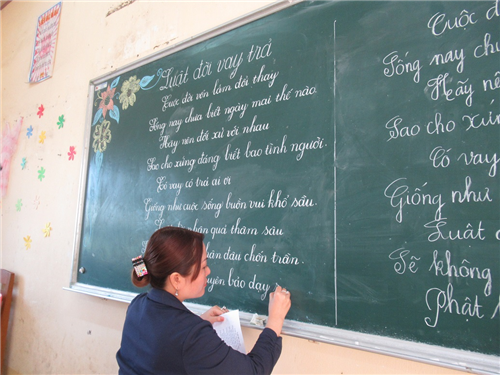 Luật đời vay trả
Cuộc đời vốn lắm đổi thay
Sống nay chưa biết ngày mai thế nào
Hãy nên đối xử với nhau
Sao cho xứng đáng biết bao tình người.
Có vay có trả ai ơi
Giống như cuộc sống buồn vui khổ sầu.
nhân quả thâm sâu
đâu chốn trần.
bảo dạy
Cuộc đ
Sống nay chưa
Hãy nê
Sao cho xứn
Có vay
Giống như
Luật
Sẽ không
Phật